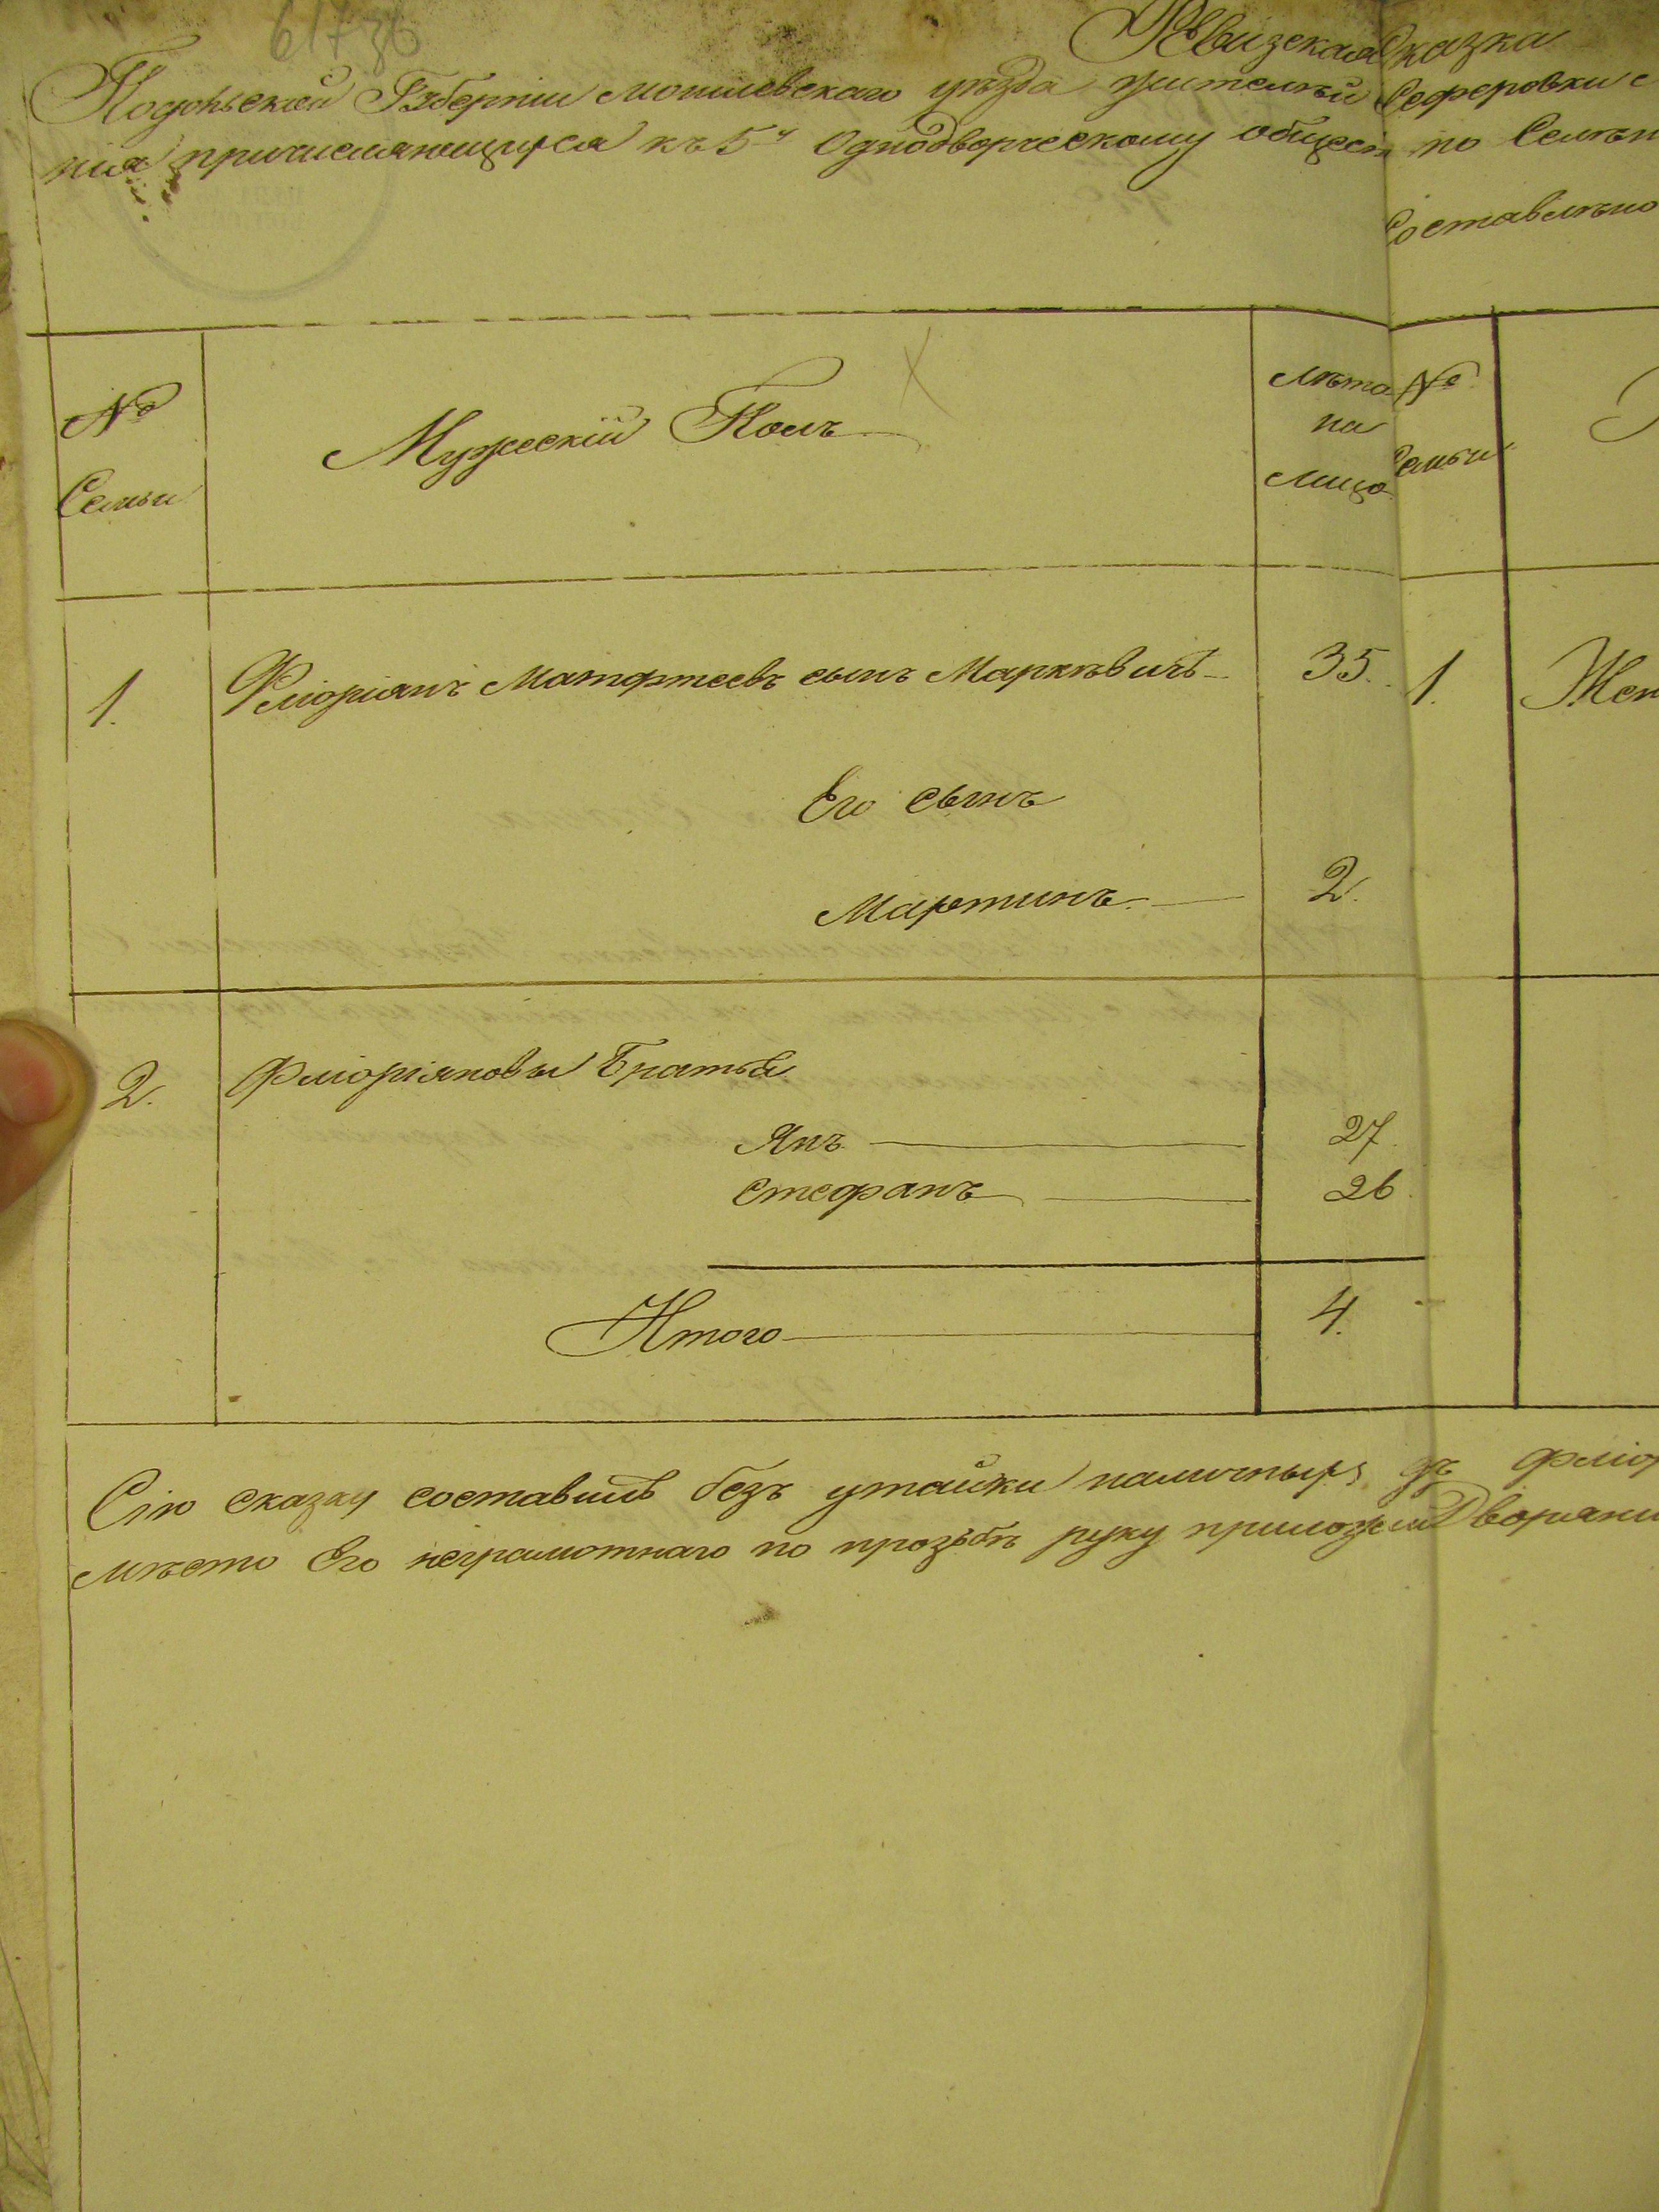 61736
Ревизская Сказка
Подольской Губерніи могилевскаго уѣзда жителѣй Сеферовки с
нія причисляющихся къ 5у Однодворческому общест по Семѣй
Составлѣно
№ Семьи
Мужескій Полъ
лѣта на лицо
№ Семьи
1. Флюріянъ Матфтеевъ сынъ Маркѣвичъ 35. 1. Жен
Его сынъ
Мартинъ 2.
2. Флюріяновы Братья
Янъ 27.
Стефанъ 26.
Итого 4.
Сію сказку составилъ безъ утайки наличныхъ Флюр
мѣсто Его неграмотнаго по прозьбѣ руку приложилъ Дворяни